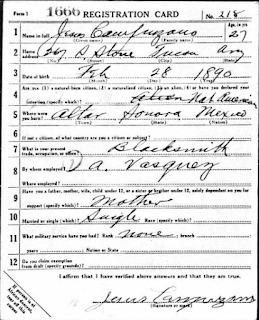 1666 REGISTRATION CARD No. 218
1 Name in full Jesus Age, in yrs. 27
(Family name)
2 Home address Stone Tucson Ariz
(No.) (Street) (City) (State)
3 Date of birth Feb 28 1890
(Month) (Day) (Year)
4 Are you (1) a natural-born citizen, (2) a naturalized citizen, (3) an alien, (4) or have you declared your
intention (specify which)?
5 Where were you born? Altar Sonora Mexico
(Town) (State) (Nation)
6 If not a citizen, of what country are you a citizen or subject?
7 What is your present trade, occupation, or office? Blacksmith
8 By whom employed? A. Vasquez
Where employed?
9 Have you a father, mother, wife, child under 12, or a sister or brother under 12, solely dependent on you for
support (specify which)? Mother
10 Married or single (which)? Single Race (specify which)?
11 What military service have you had? Rank none branch
years Nation or State
12 Do you claim exemption from draft (specify grounds)?
I affirm that I have verified above answers and that they are true.
Jesus
(Signature or mark)